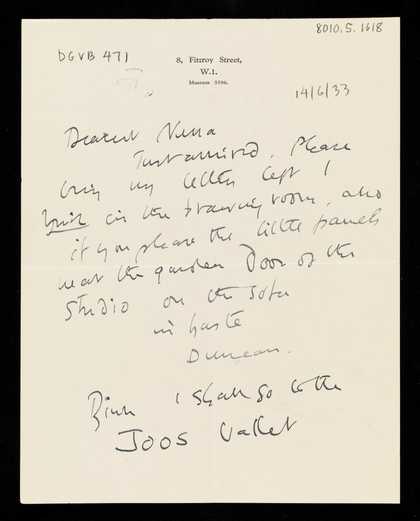 8010.5.1618
DGVB 471
8, Fitzroy Street,
W.1.
Museum
14/6/33
Dearest Nessa
Just arrived. Please
bring my letter left I
think in the drawing room, also
if you please the little panels
near the garden Door of the
Studio on the Sofa
in haste
Duncan.
I shall go to the
JOOS Ballet